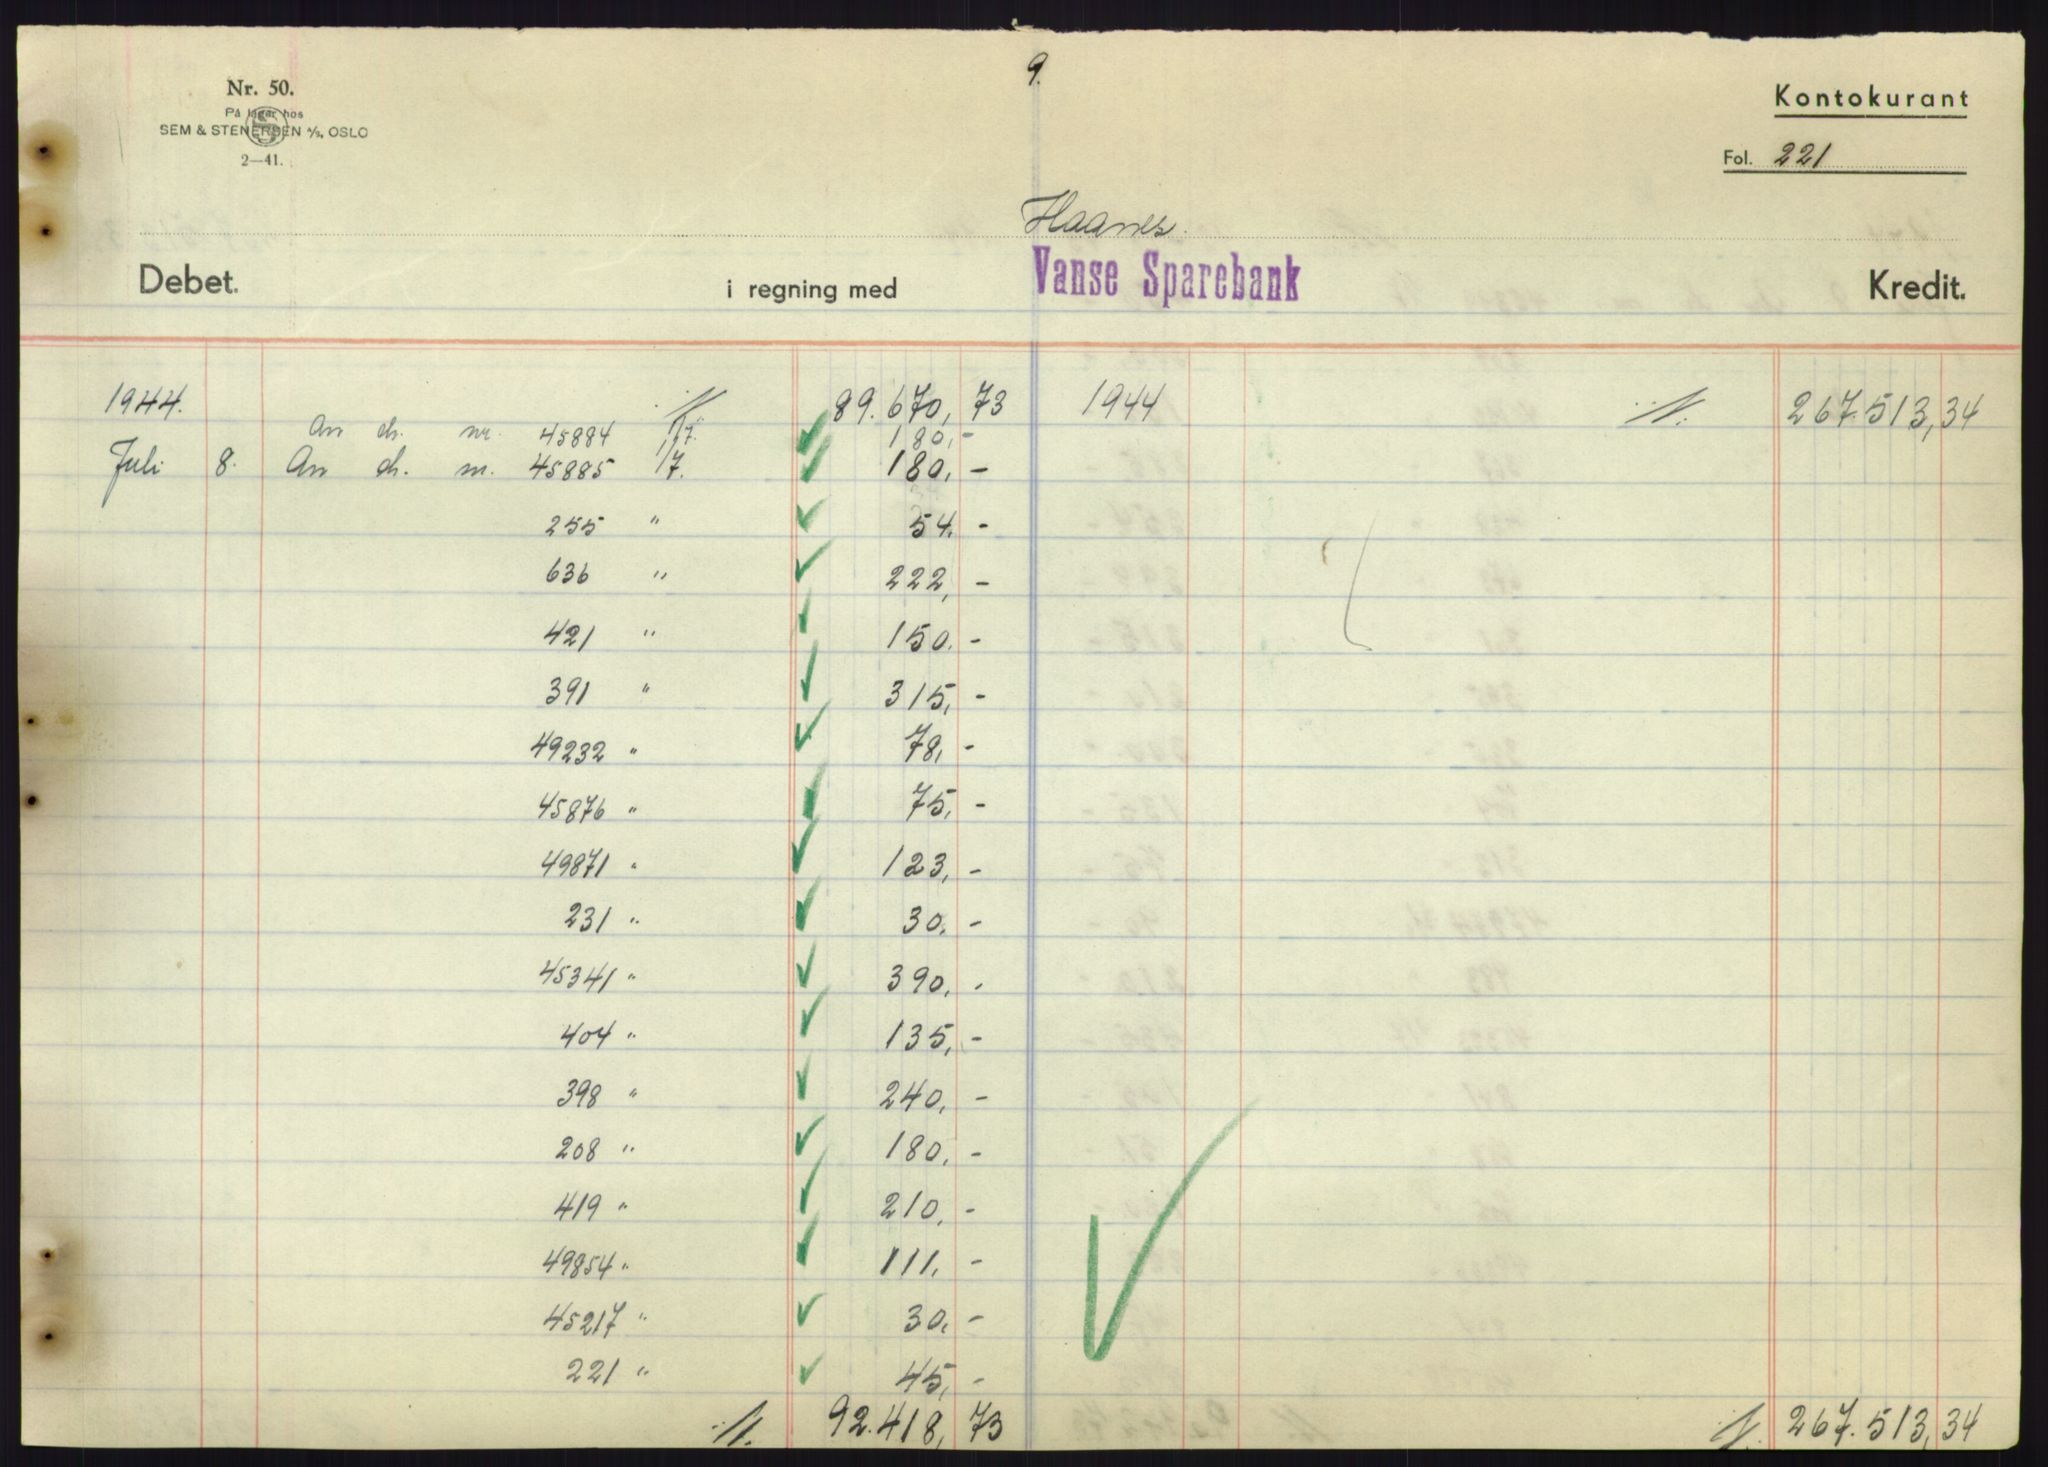 9.
Nr. 50.
På lager hos
SEM & STENERSEN A/S, OSLO
2—41.
Kontokurant
Fol. 221
Haanes.
Debet. i regning med Vanse Sparebank Kredit.
1944. 89.670,73 1944 267.513,34
An ch. nr. 45884 1/7. 180,-
Juli 8. An ch. nr. 45885 1/7. 180,-
255 " 54,-
636 " 222,-
421 " 150,-
391 " 315,-
49232 " 78,-
45876 " 75,-
49871 " 123,-
231 " 30,-
45341 " 390,-
404 " 135,-
398 " 240,-
208 " 180,-
419 " 210,-
49854 " 111,-
45217 " 30,-
221 " 45,-
92.418,73 267.513,34